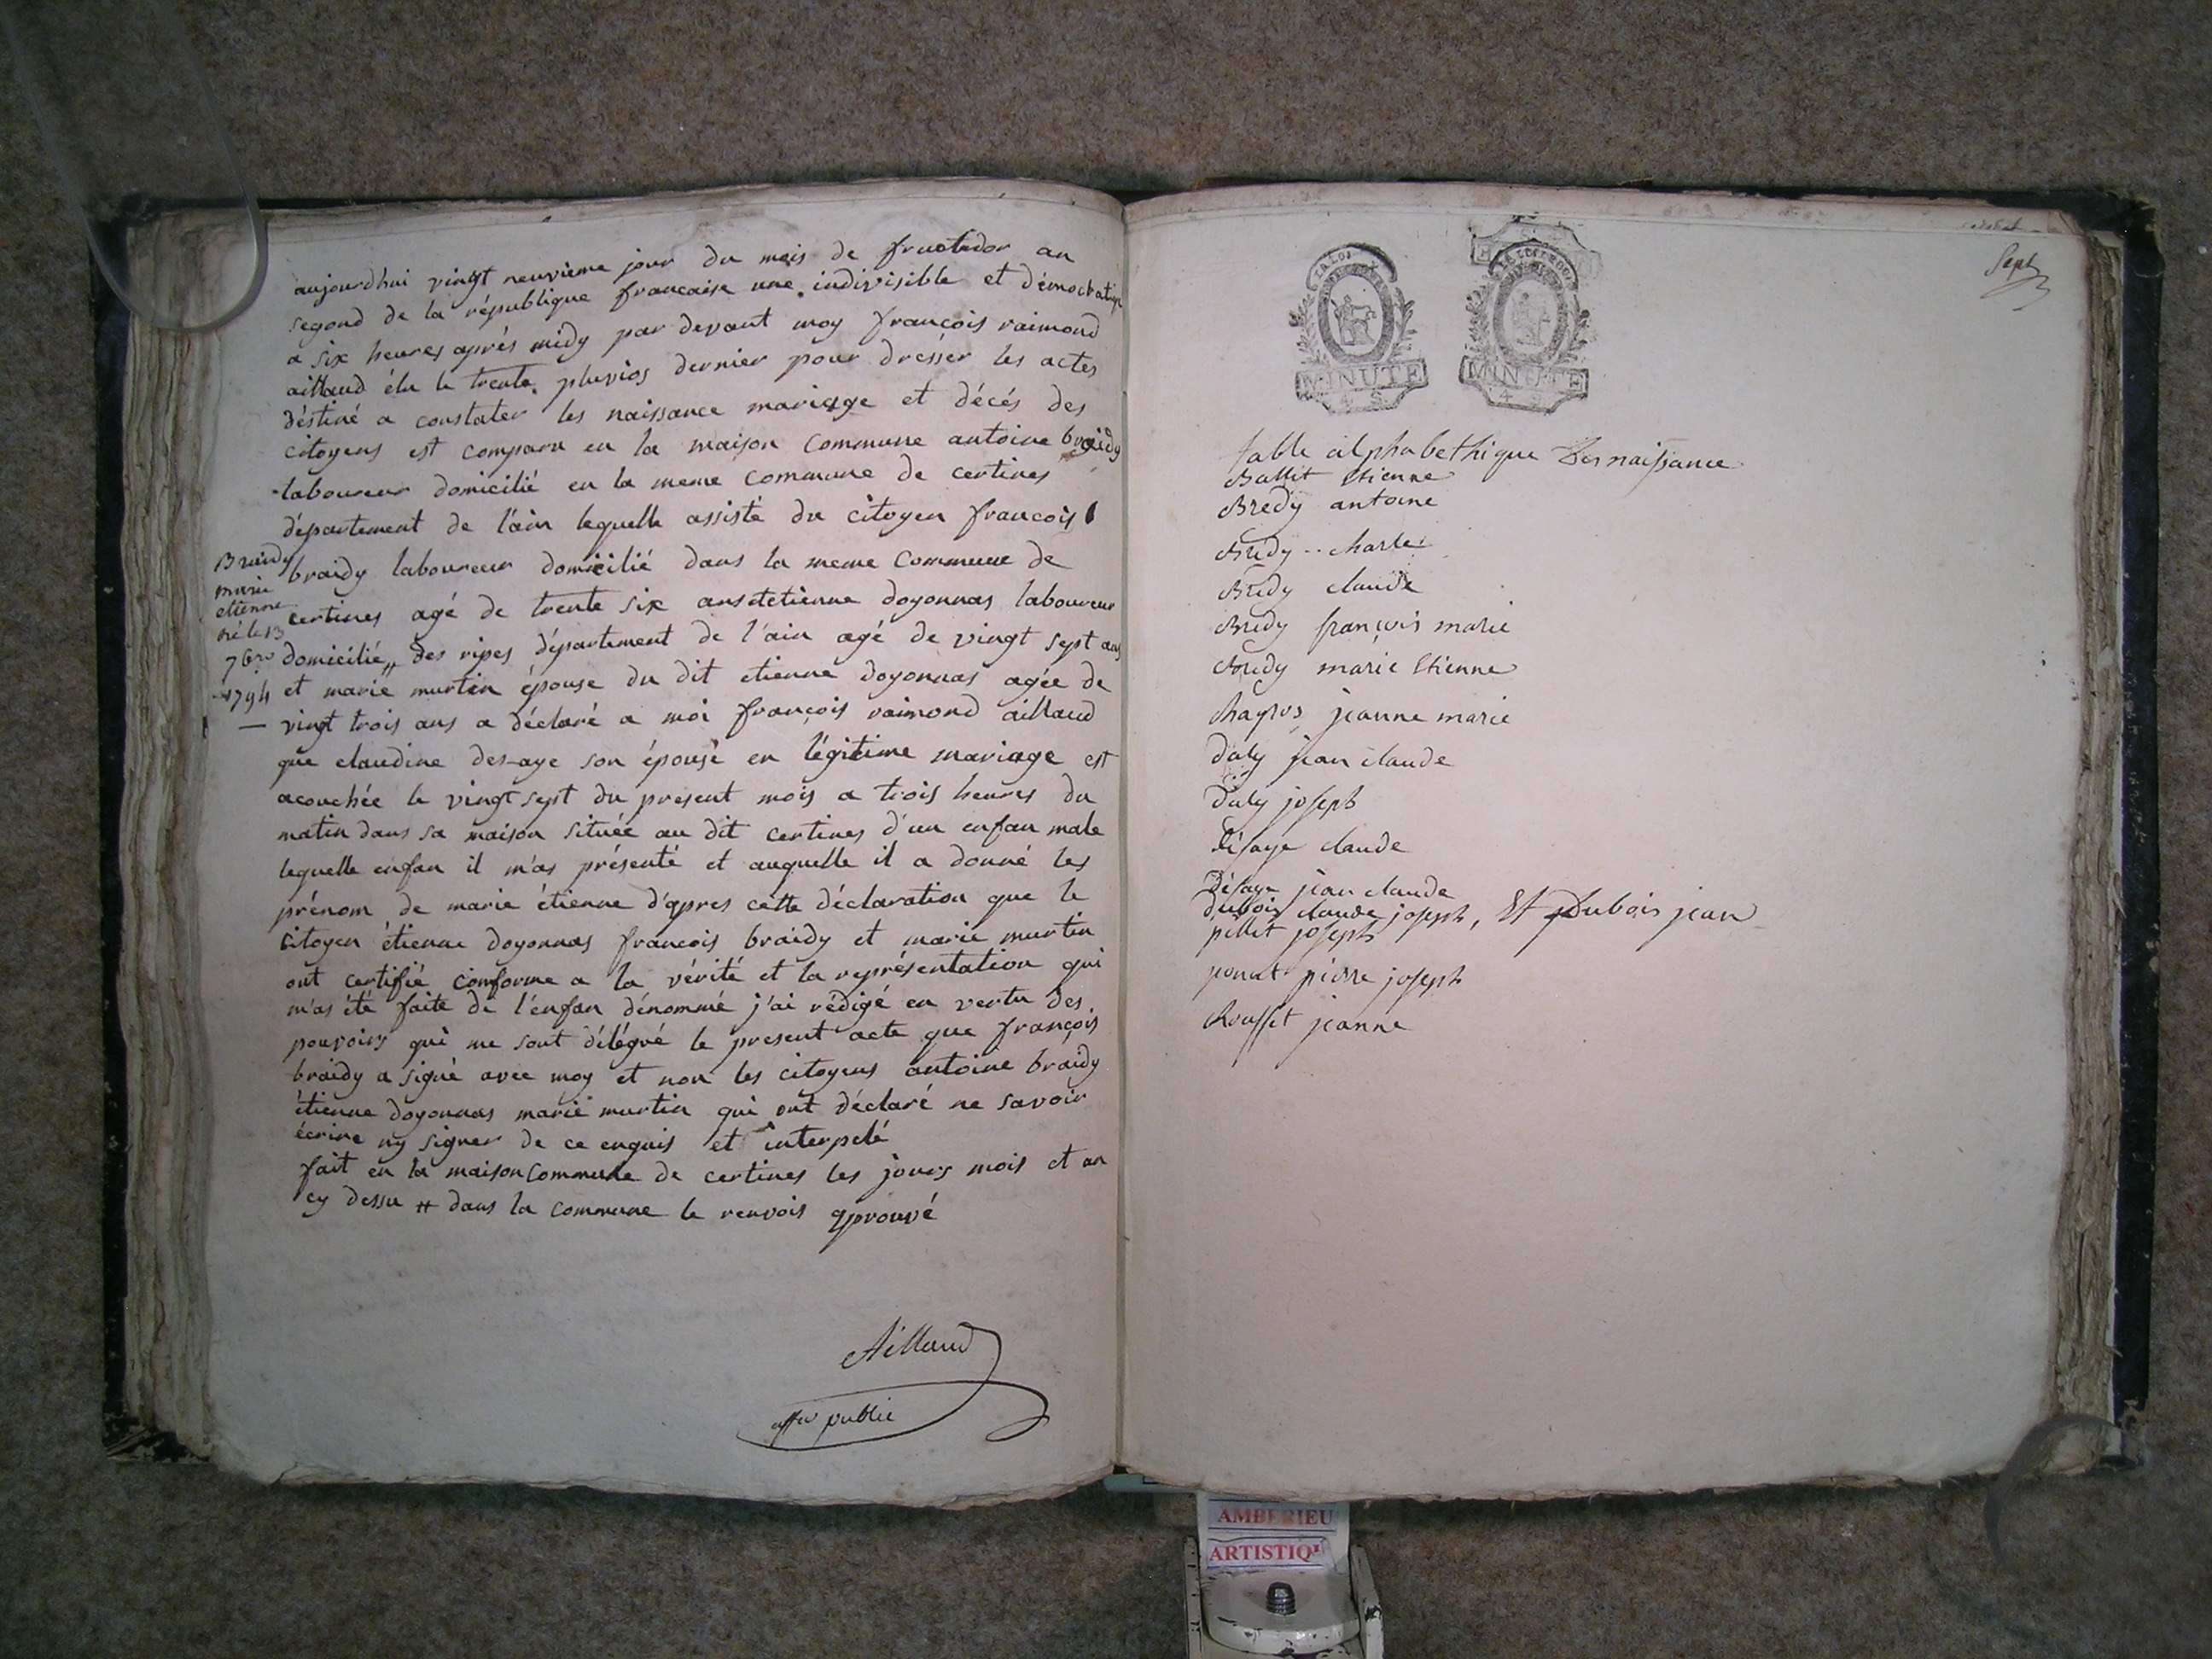 aujourdhui vingt neuvième jour du mois de fructidor an
segond de la république francaise une indivisible et démocratique
a six heures aprés midy par devant moy françois raimond
aillaud élu le trente pluvios dernier pour dresser les actes
déstiné a constater les naissance mariage et décés des
citoyens est comparu en la maison commune antoine braidy
laboureur domicilié en la meme commune de certines
département de l'ain lequelle assisté du citoyen francois
braidy laboureur domicilié dans la meme commune de
certines agé de trente six ans et etienne doyonnas laboureur
domicilié # des ripes département de l'ain agé de vingt sept ans
et marie murtin épouse du dit etienne doyonnas agée de
vingt trois ans a déclaré a moi françois raimond aillaud
que claudine desaye son épouse en légitime mariage est
acouchée le vingt sept du present mois a trois heures du
matin dans sa maison située au dit certines d'un enfan male
lequelle enfan il m'as présenté et auquelle il a donné les
prénom de marie étienne d'apres cette déclaration que le
citoyen étienne doyonnas francois braidy et marie murtin
ont certifié conforme a la vérité et la représentation qui
m'as été faite de l'enfan dénommé j'ai rédigé en vertu des
pouvoirs qui me sont délégué le present acte que françois
braidy a signé avec moy et non les citoyens antoine braidy
étienne doyonnas marie murtin qui ont déclaré ne savoir
écrire ny signer de ce enquis et interpelé
fait en la maison commune de certines les jours mois et an
cy dessu # dans la commune le renvois aprouvé
Braidy
marie
etienne
né le 13
7bre
1794
Aillaud
offer public
Sept
MINUTE
4 S
MINUTE
4 S
table alphabethique Des naissance
Ballit Etienne
Bredy antoine
Bredy charles
Bredy claude
Bredy françois marie
Bredy marie Etienne
Chagros jeanne marie
Daly jean claude
Daly joseph
Désaye claude
Désaye jean claude
Dubois claude joseph, Et Dubois jean
pillit joseph
ponat pierre joseph
Roussit jeanne
AMBERIEU
ARTISTIQ